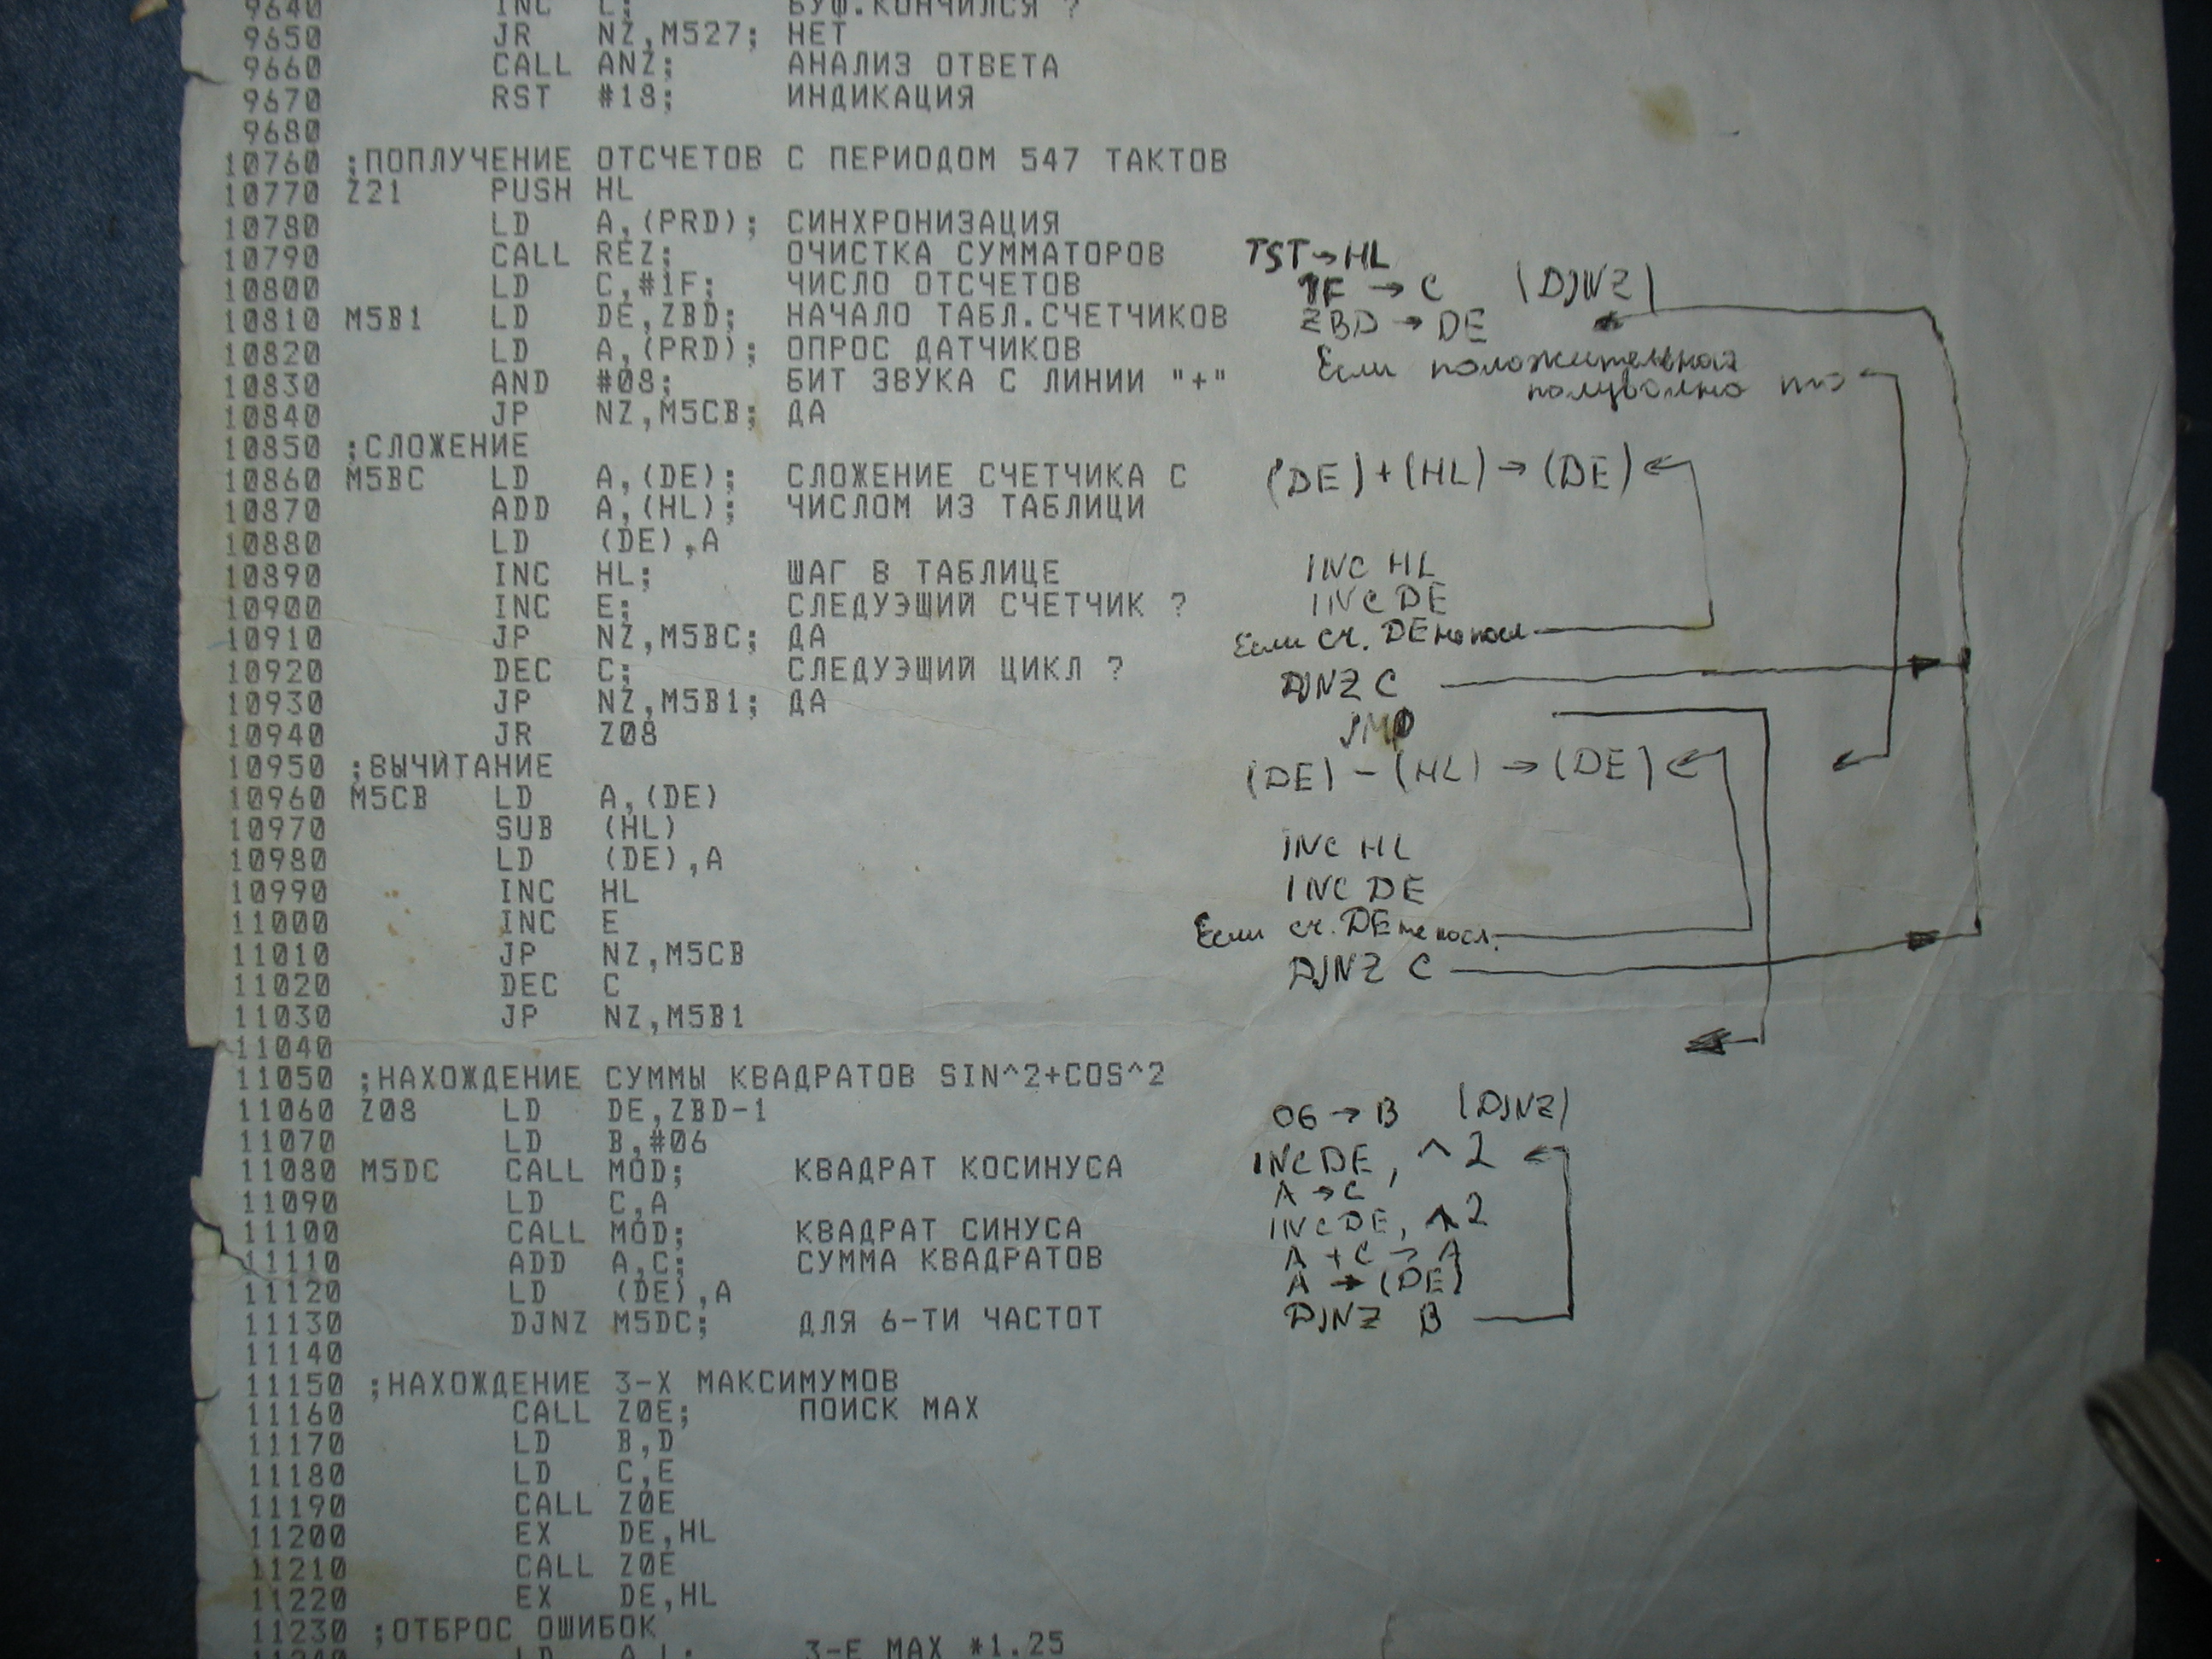 9640 INC L; БУФ.КОНЧИЛСЯ ?
9650 JR NZ,M527; НЕТ
9660 CALL ANZ; АНАЛИЗ ОТВЕТА
9670 RST #18; ИНДИКАЦИЯ
9680
10760 ;ПОПЛУЧЕНИЕ ОТСЧЕТОВ С ПЕРИОДОМ 547 ТАКТОВ
10770 Z21 PUSH HL
10780 LD A,(PRD); СИНХРОНИЗАЦИЯ
10790 CALL REZ; ОЧИСТКА СУММАТОРОВ TST→HL
10800 LD C,#1F; ЧИСЛО ОТСЧЕТОВ 1F → C (DJNZ)
10810 M5B1 LD DE,ZBD; НАЧАЛО ТАБЛ.СЧЕТЧИКОВ ZBD → DE
10820 LD A,(PRD); ОПРОС ДАТЧИКОВ Если положительная
10830 AND #08; БИТ ЗВУКА С ЛИНИИ "+" полуволна то
10840 JP NZ,M5CB; ДА
10850 ;СЛОЖЕНИЕ
10860 M5BC LD A,(DE); СЛОЖЕНИЕ СЧЕТЧИКА С (DE)+(HL)→(DE)
10870 ADD A,(HL); ЧИСЛОМ ИЗ ТАБЛИЦИ
10880 LD (DE),A
10890 INC HL; ШАГ В ТАБЛИЦЕ INC HL
10900 INC E; СЛЕДУЭЩИЙ СЧЕТЧИК ? INC DE
10910 JP NZ,M5BC; ДА Если сч. DE не посл
10920 DEC C; СЛЕДУЭЩИЙ ЦИКЛ ? DJNZ C
10930 JP NZ,M5B1; ДА
10940 JR Z08 JMP
10950 ;ВЫЧИТАНИЕ (DE) – (HL) → (DE)
10960 M5CB LD A,(DE)
10970 SUB (HL)
10980 LD (DE),A INC HL
10990 INC HL INC DE
11000 INC E Если сч. DE не посл.
11010 JP NZ,M5CB DJNZ C
11020 DEC C
11030 JP NZ,M5B1
11040
11050 ;НАХОЖДЕНИЕ СУММЫ КВАДРАТОВ SIN^2+COS^2
11060 Z08 LD DE,ZBD-1 06 → B (DJNZ)
11070 LD B,#06
11080 M5DC CALL MOD; КВАДРАТ КОСИНУСА INC DE, ^2
11090 LD C,A A → C
11100 CALL MOD; КВАДРАТ СИНУСА INC DE, ^2
11110 ADD A,C; СУММА КВАДРАТОВ A + C → A
11120 LD (DE),A A → (DE)
11130 DJNZ M5DC; ДЛЯ 6-ТИ ЧАСТОТ DJNZ B
11140
11150 ;НАХОЖДЕНИЕ 3-Х МАКСИМУМОВ
11160 CALL Z0E; ПОИСК MAX
11170 LD B,D
11180 LD C,E
11190 CALL Z0E
11200 EX DE,HL
11210 CALL Z0E
11220 EX DE,HL
11230 ;ОТБРОС ОШИБОК
11240 LD A,L; 3-Е MAX *1.25